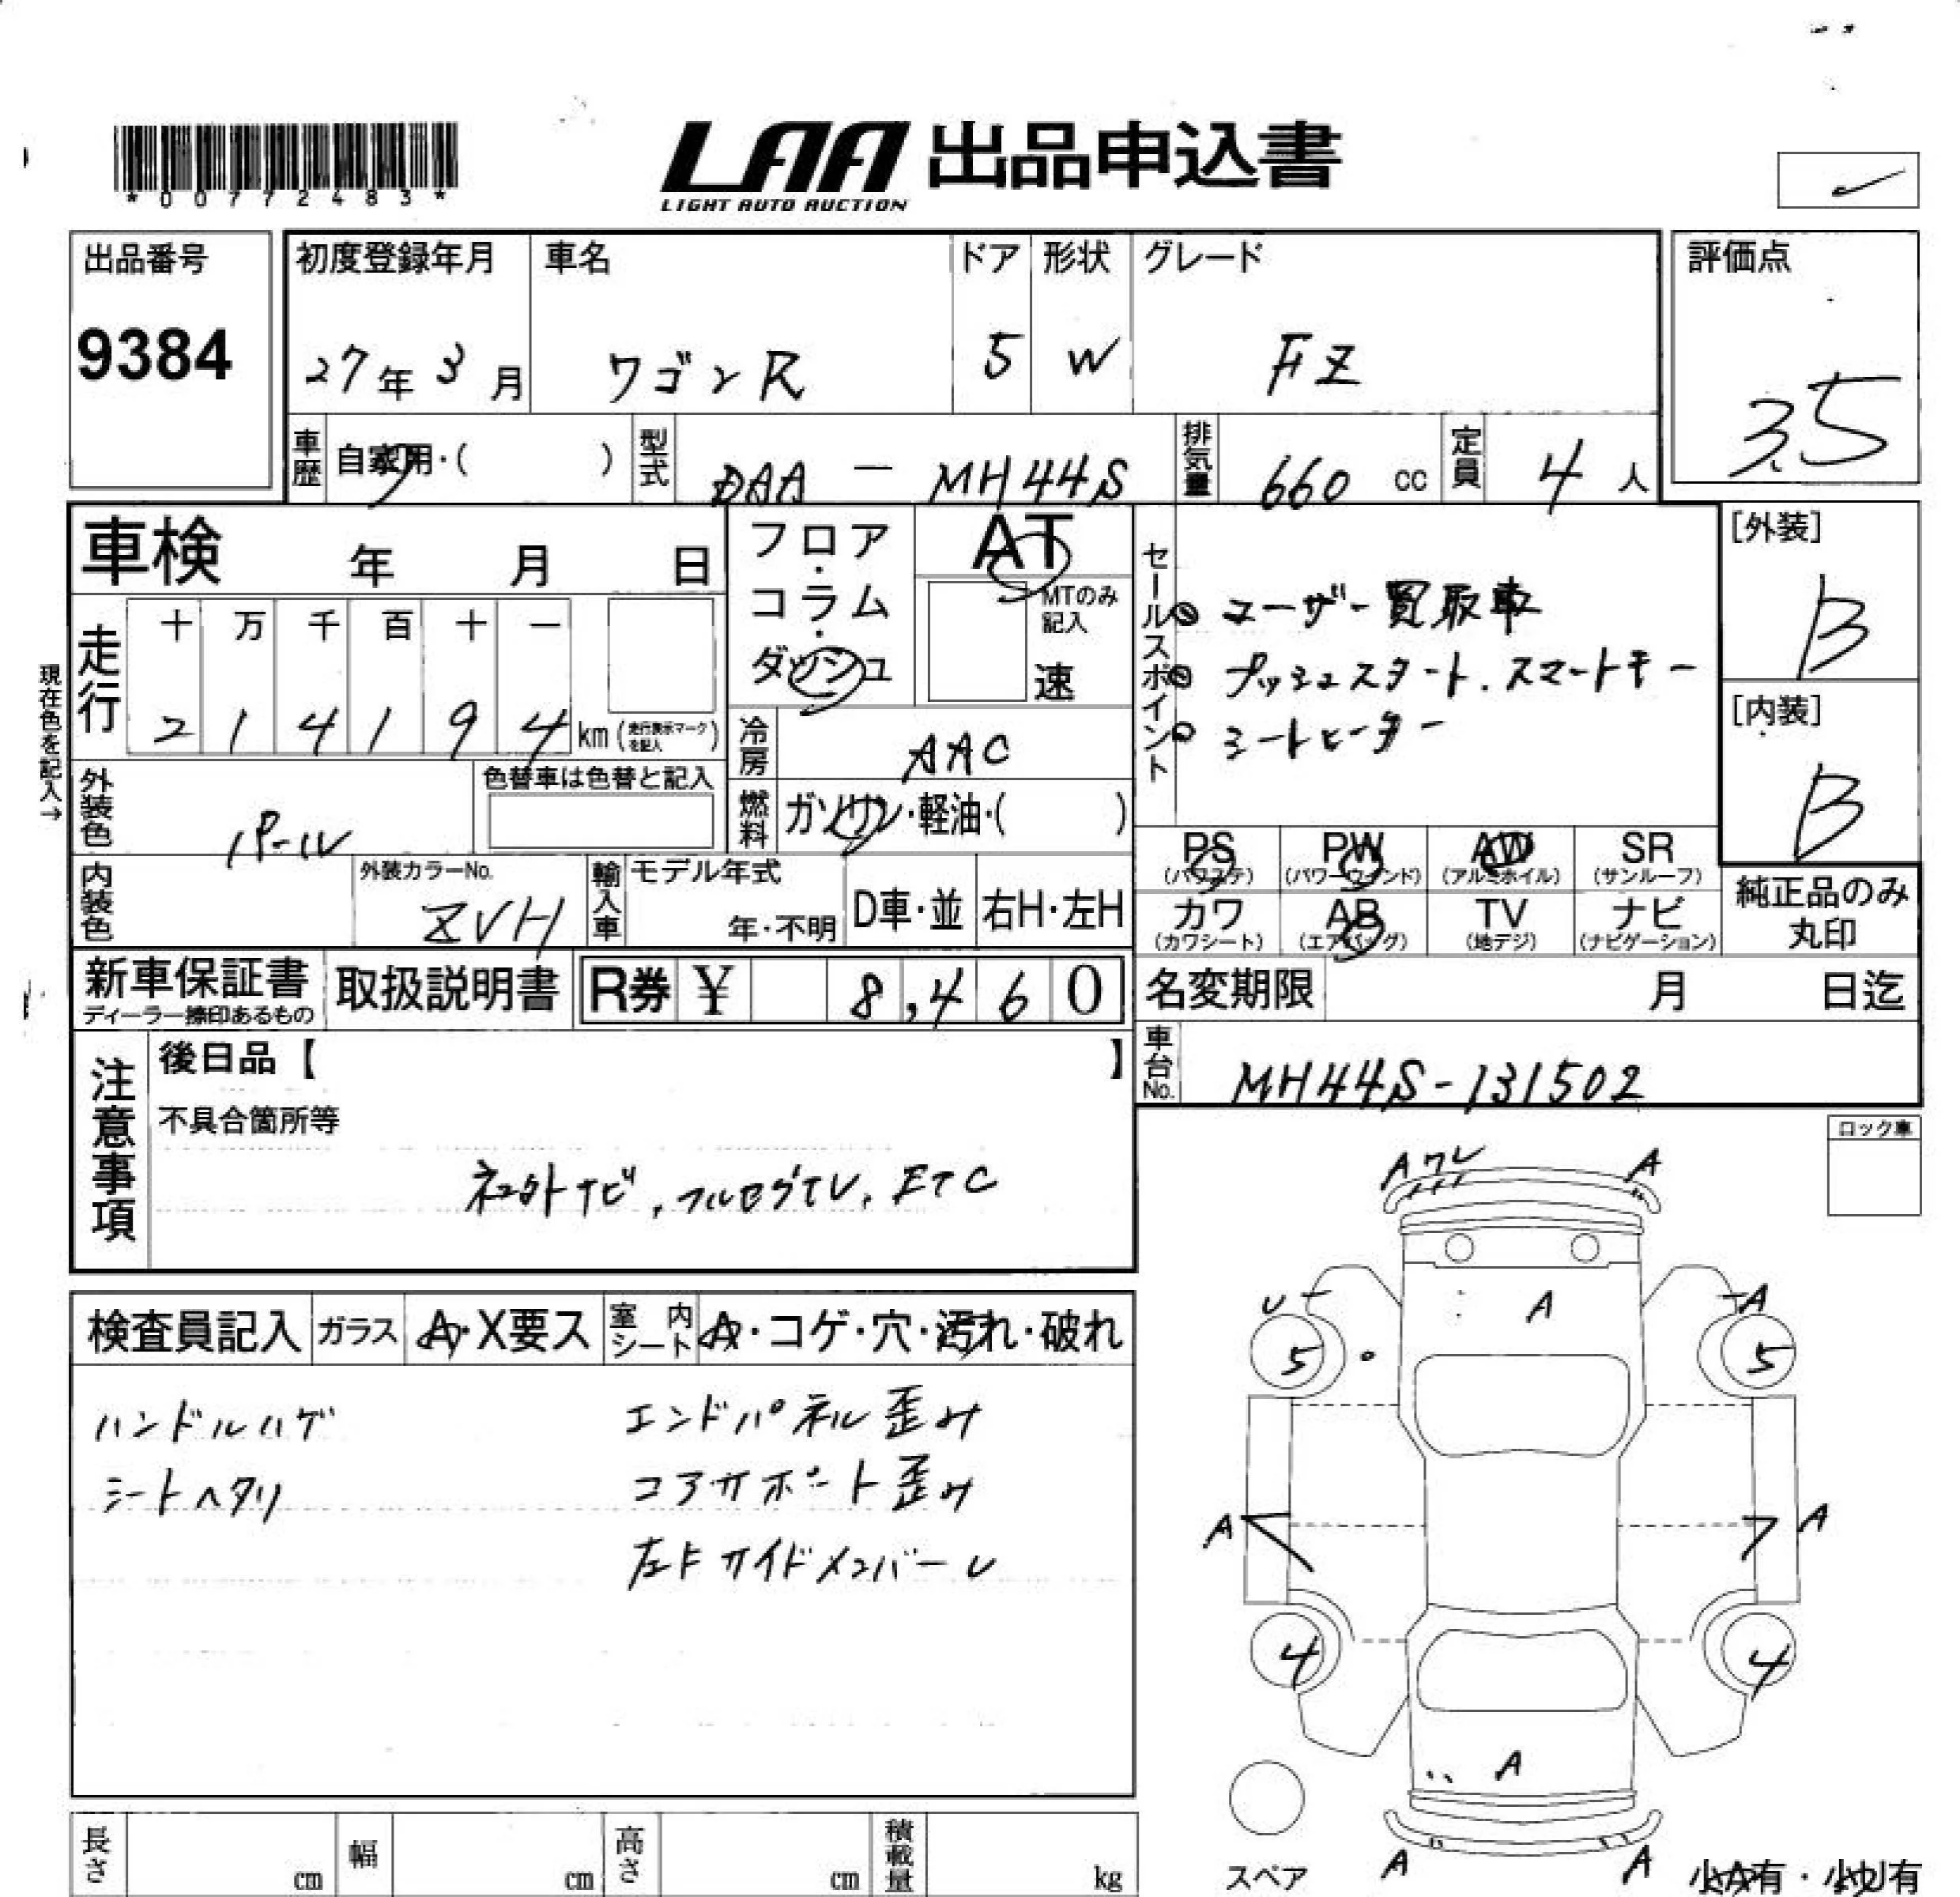 *00772483*
LAA 出品申込書
LIGHT AUTO AUCTION
出品番号
9384
初度登録年月
27年3月
車名
ワゴンR
ドア
5
形状
W
グレード
FZ
評価点
3.5
車歴
自家用・( )
型式
DAA - MH44S
排気量
660 cc
定員
4人
車検 年 月 日
フロア・コラム・ダッシュ
AT
MTのみ記入
速
セールスポイント
ユーザー買取車
プッシュスタート、スマートキー
シートヒーター
[外装]
B
[内装]
B
現在色を記入→
走行
十 万 千 百 十 一
2 1 4 1 9 4 km (走行表示マークを記入)
冷房
AAC
外装色
パール
色替車は色替と記入
燃料
ガソリン・軽油・( )
PS (パワステ)
PW (パワーウインド)
AW (アルミホイル)
SR (サンルーフ)
内装色
外装カラーNo.
ZVH
輸入車
モデル年式
年・不明
D車・並
右H・左H
カワ (カワシート)
AB (エアバッグ)
TV (地デジ)
ナビ (ナビゲーション)
純正品のみ丸印
新車保証書
ディーラー捺印あるもの
取扱説明書
R券 ¥ 8,460
名変期限 月 日迄
注意事項
後日品【 】
不具合箇所等
社外ナビ、フルセグTV、ETC
車台No.
MH44S-131502
ロック車
検査員記入
ガラス
A・X要ス
室内シート
A・コゲ・穴・汚れ・破れ
ハンドルハゲ
エンドパネル歪み
シートヘタリ
コアサポート歪み
左Fサイドメンバー U
A ワレ A
U A A
5 5
A A
4 4
A
A A
スペア
小A有・小U有
長さ cm
幅 cm
高さ cm
積載量 kg